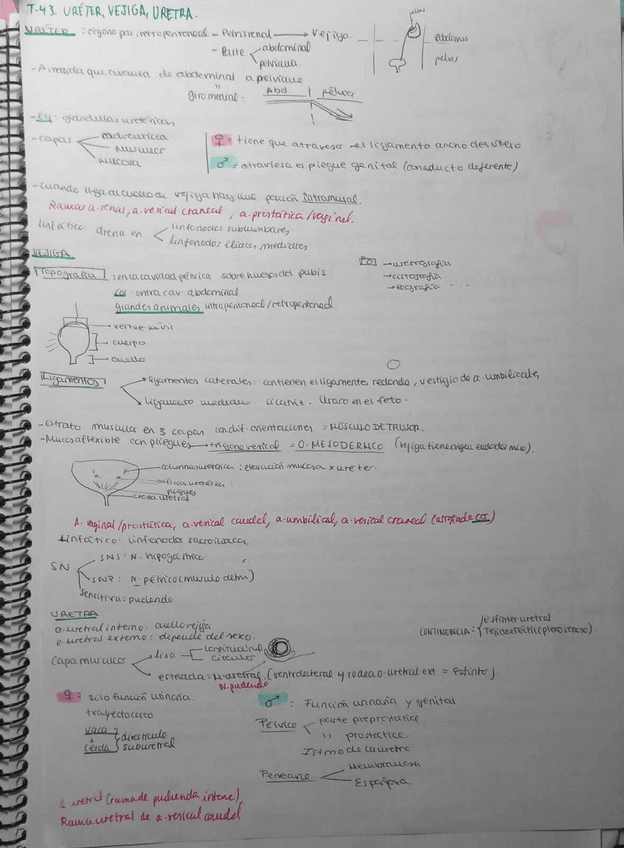 T-43. URÉTER, VEJIGA, URETRA.
URÉTER: órgano par, retroperitoneal - Pelvis renal → Vejiga.
- Parte abdominal
pelviana
abdomen
pelvis
- A medida que avanza de abdominal a pelviana
giro medial. Abd pélvis
- glándulas uretéricas
- capas adventicia
muscular
mucosa
♀: tiene que atravesar el ligamento ancho del útero
♂: atraviesa el pliegue genital (conducto deferente)
- Cuando llega al cuello de vejiga hay una porción intramural.
Ramas a. renal, a. vesical craneal, a. prostática/vaginal.
linfático: drena en linfonodos sublumbares
linfonodos iliacos mediales
VEJIGA
Topografía: en la cavidad pélvica sobre hueso del pubis
→ uretrografía
→ cistografía
→ ecografía ...
abdominal
grandes animales intraperitoneal/retroperitoneal.
vertice
cuerpo
cuello
Ligamentos
ligamentos laterales: contienen el ligamento redondo, vestigio de a. umbilicales
ligamento mediano cicatriz. Uraco en el feto.
- Estrato muscular en 3 capas con dif. orientaciones = MÚSCULO DETRUSOR.
- Mucosa flexible con pliegues → trígono vesical = O. MESODERMICO (vejiga tiene origen endodérmico).
columna uretérica: elevación mucosa x ureter.
orificios uretéricos:
pliegues
cresta uretral
A. vaginal/prostática, a. vesical caudal, a. umbilical, a. vesical craneal (atrofiada
Linfático: linfonodo sacroiliaca.
SN
SNS: N. hipogástrico
SNP: N. pélvico (músculo detrusor)
Sensitiva: pudendo
URETRA
O. uretral interno: cuello vejiga
O. uretral externo: depende del sexo.
CONTINENCIA: esfinter uretral
Tejido eréctil (plexo venoso)
Capa muscular
lisa longitudinal
circular
estriada: M. uretral (ventrolateral y rodea o. uretral ext = esfínter)
N. pudendo
♀: Solo función urinaria.
trayecto corto
vaca + cerda divertículo suburetral
♂: Función urinaria y genital
Pélvica parte preprostática
" prostática
Istmo de la uretra
Peneana Membranosa
Esponjosa
uretral (rama de pudenda interna)
Rama uretral de a. vesical caudal